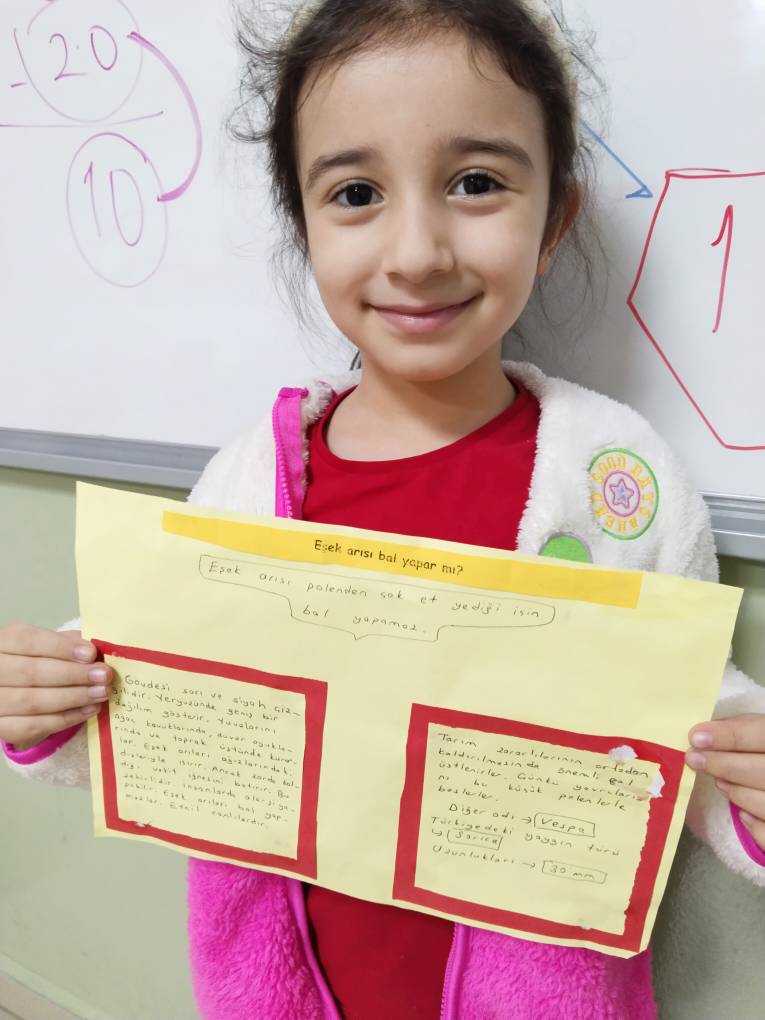 -20
10
1
GOOD DAYS AHEAD
Eşek arısı bal yapar mı?
Eşek arısı polenden çok et yediği için
bal yapamaz.
Gövdesi sarı ve siyah çiz-
gilidir. Yeryüzünde geniş bir
dağılım gösterir. Yuvalarını
ağaç kavuklarında, duvar oyukla-
rında ve toprak üstünde kurar-
lar. Eşek arıları ağızlarındaki
dişleriyle ısırır. Ancak zorda kal-
dığı vakit iğnesini batırır. Bu
zehirlidir. İnsanlarda alerji ya-
pabilir. Eşek arıları bal yap-
mazlar. Etçil canlılardır.
Tarım zararlılarının ortadan
kaldırılmasında önemli
üstlenirler. Günkü yavruların
nı bu küçük polenlerle
beslerler.
Diğer adı → Vespa
Türkiyedeki yaygın türü
↳ Sarıca
Uzunlukları → 30 mm